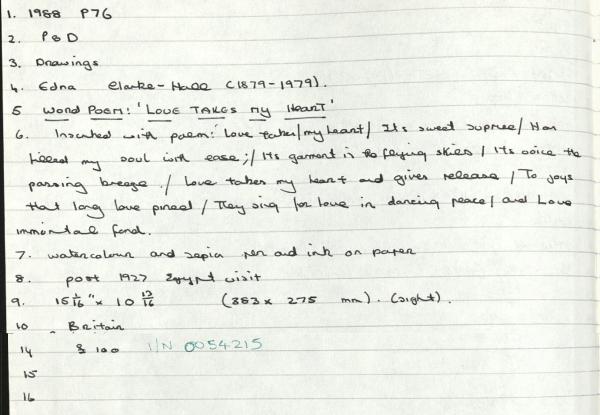 1. 1988 P76
2. P & D
3. Drawings
4. Edna Clarke-Hall (1879-1979).
5 Word Poem: 'Love Takes my Heart'
6. Inscribed with poem: 'Love takes/my heart/ Its sweet supree/ Has
my soul with ease;/ Its garment is the flying skies / Its voice the
passing breeze :/ Love takes my heart and gives release / To joys
that long love pined / They sing for love in dancing peace/ and Love
immortal fond.
7. watercolour and sepia pen and ink on paper
8. post 1927 Egypt visit
9. 15 1/16" x 10 13/16 (383 x 275 mm). (sight).
10 Britain
14 £ 100 I/N 0054215
15
16